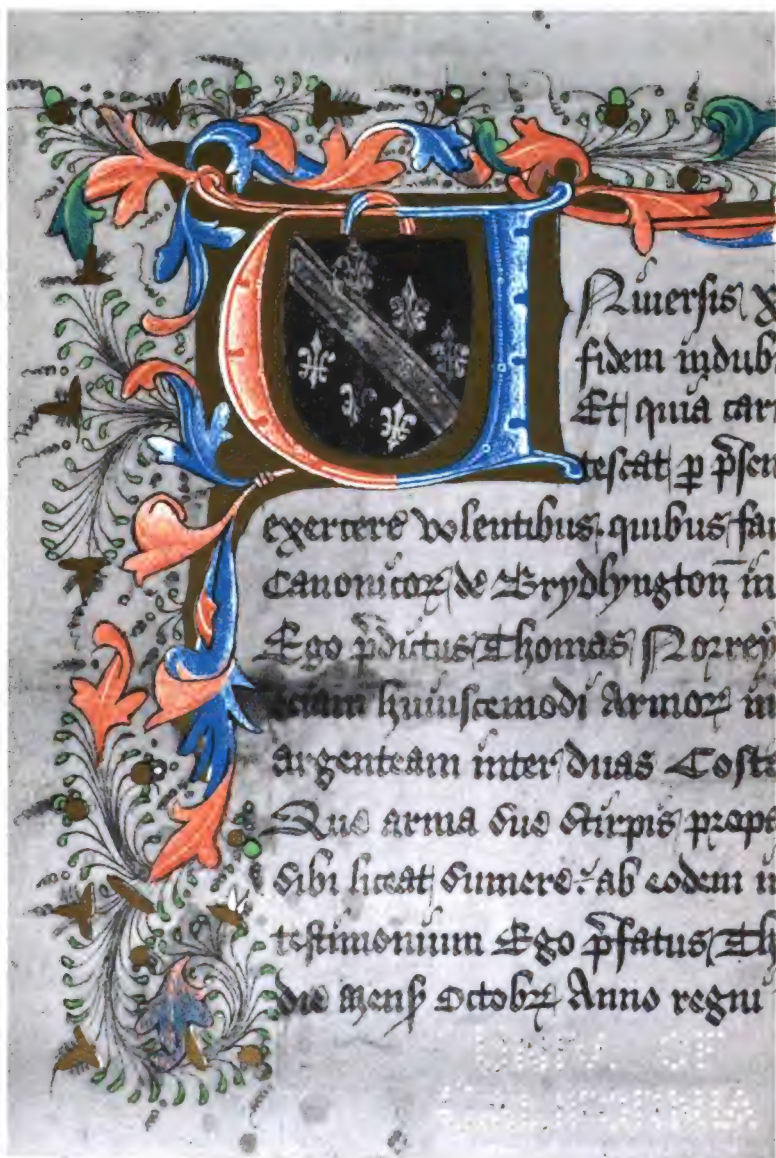 UNiuersis X
fidem indub
Et quia car
tescat p p̄sen
exercere volentibus quibus fa
Canonicoꝝ de Brydlyngton̄ in
Ego p̄dictus Thomas Norrey
huiuscemodi Armoꝝ in
argenteam inter duas Cost
Que arma sue stirpis prep
sibi liceat sumere ab eodem
testimonium Ego p̄fatus Th
die Octobꝝ Anno regni